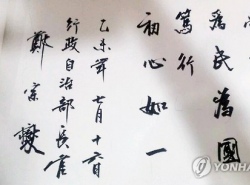 爲民爲國
篤行
初心如一
乙未年七月十六日
行政自治部長官
鄭宗燮
YONHAP